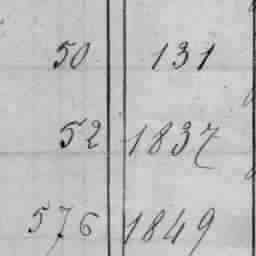 50 131
52 1837
576 1849